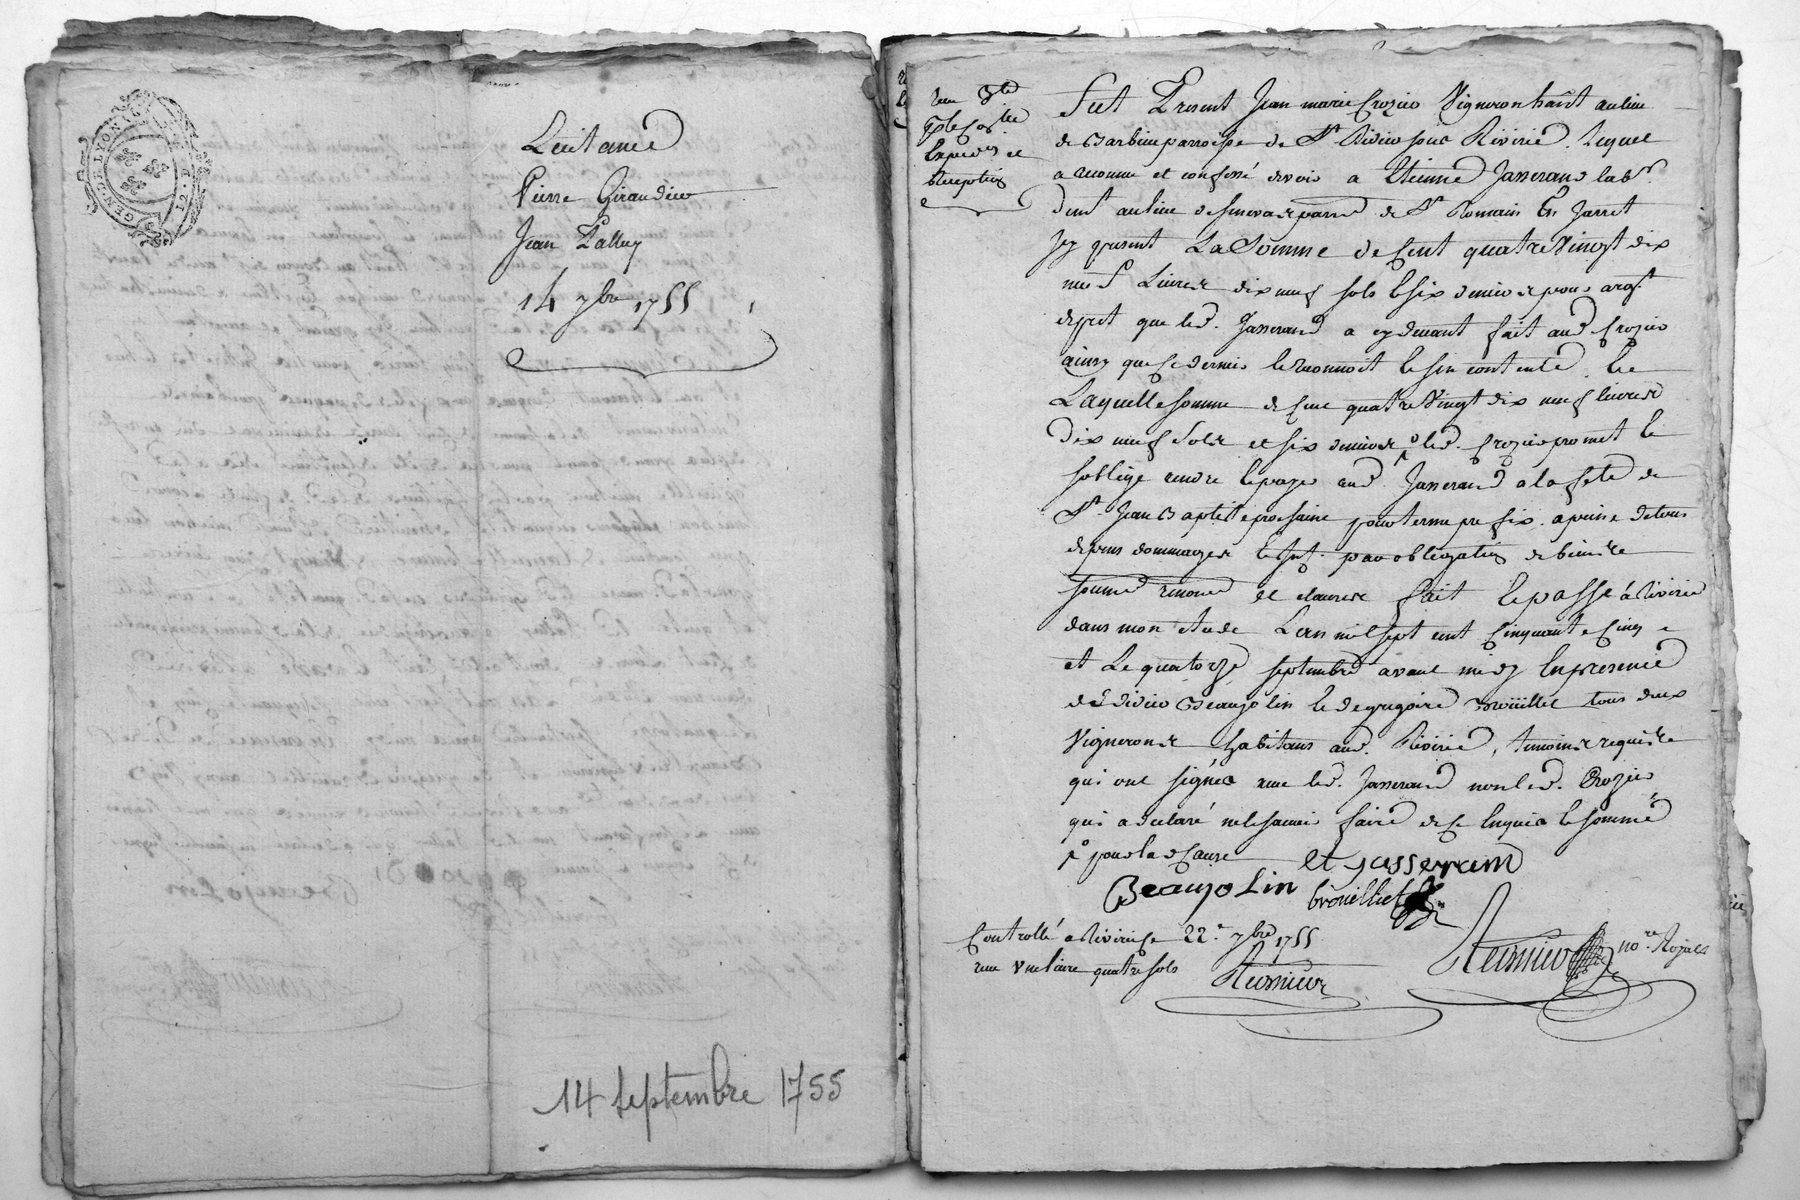 GEN. DE LYON
Pierre Giraudier
Jean
14 7bre 1755
14 septembre 1755
Fut Present Jean marie Crozier Vigneron habit au lieu
de parroisse de St Didier sous Riverie. Lequel
a reconnu et confessé devoir a Etienne Jasserand lab.r
au lieu de de St Romain En Jarret
Icy present La Somme de Cent quatre Vingt dix
neuf Livres dix neuf sols et six deniers pour arg.t
de pret que led. Jasserand a cy devant fait aud Crozier
ainsy que ce dernier le reconnoit et s'en contente.
Laquelle somme de Cent quatre Vingt dix neuf livres
Dix neuf Sols et six deniers led. Crozier promet et
s'oblige rendre et payer aud Jasserand a la fete de
St Jean Baptiste prochaine pour terme prefix a peine de tous
depens dommages et Int. par obligation de biens
et clauses fait et passé à Riverie
dans mon etude L'an mil sept cent Cinquante Cinq
et Le quatorze septembre avant midy En presence
de Didier Beaujolin et de gregoire Brouillet tous deux
Vignerons habitans aud. Riverie, temoins requis
qui ont signés avec led. Jasserand non led. Crozier
qui a declaré ne le sçavoir faire de ce Enquis et sommé
et jasserand
Beaujolin brouillet
Controllé a Riverie ce 22e 7bre 1755
quatre sols
no.re Royal